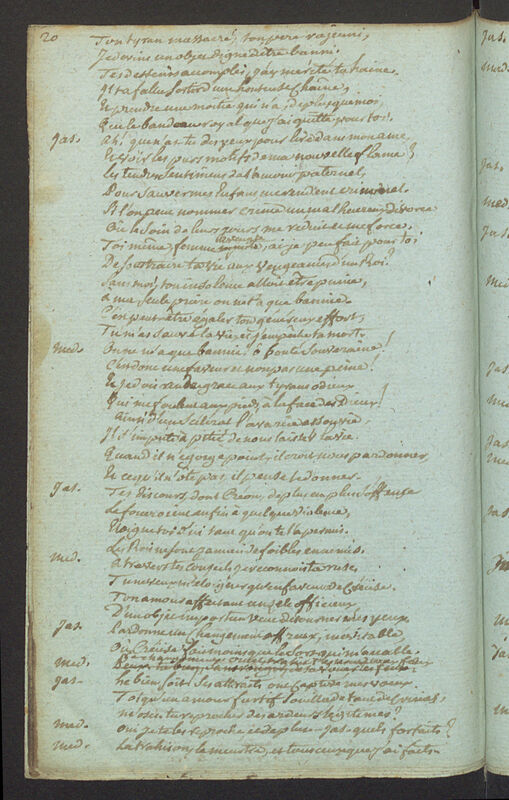 20
Ton tyran massacré, ton pere rajeuni,
Je devins un objet digne d'être banni.
Tes desseins accomplis, j'ai merité ta haine.
Il t'a fallu sortir d'une honteuse chaine,
Et prendre une moitié qui n'a, de plus que moi,
Que le bandeau royal que j'ai quitté pour toi!
Jas. Ah! que n'as tu des yeux pour lire dans mon ame,
Et voir les purs motifs de ma nouvelle flame!
Les tendres sentimens de l'amour paternel,
Pour sauver mes enfans me rendent criminel.
Si l'on peut nommer crime un malheureux divorce
Où le soin de leurs jours me reduit et me force.
Toi même, femme aveugle, ai-je peu fait pour toi
De soustraire ta vie aux vengeances d'un Roi?
Sans moi, ton insolence alloit être punie,
a ma seule priere on ne t'a que bannie.
C'en peut-être égaler ton généreux effort;
Tu m'as sauvé la vie, et j'empêche ta mort.
Med. On ne m'a que bannie! ô bonté souveraine!
C'est donc une faveur et non pas une peine!
Et je dois rendre grace aux tyrans odieux
Qui me foulent aux pieds, à la face des Dieux!
Ainsi d'un scélérat l'avarice assouvie,
Il s'impute à pitié de nous laisser la vie.
Quand il n'égorge point, il croit nous pardonner,
Et ce qu'il n'ôte pas, il pense le donner.
Jas. Tes discours, dont Créon, de plus en plus s'offense
Le forceroient enfin à quelque violence,
Eloigne toi d'ici tant qu'on te l'a permis.
Les Rois ne font jamais de foibles ennemis.
Med. A travers tes conseils, je reconnois ta ruse,
Tu ne veux m'éloigner qu'en faveur de Créüse.
Ton amour affectant un zèle officieux
D'un objet importun veut détourner mes yeux.
Jas. Pardonne un changement affreux, inévitable,
Où Créüse a moins que le sort qui m'accable.
Med.
Jas. he bien soit. Ses attraits ont captivé mes voeux.
Toi qu'un amour furtif souilla de tant de crimes,
m'oses tu reprocher des ardeurs légitimes?
Med. Oui, je te les reproche et de plus — Jas. quels forfaits?
Med. La trahison, le meurtre, et tous ceux que j'ai faits.